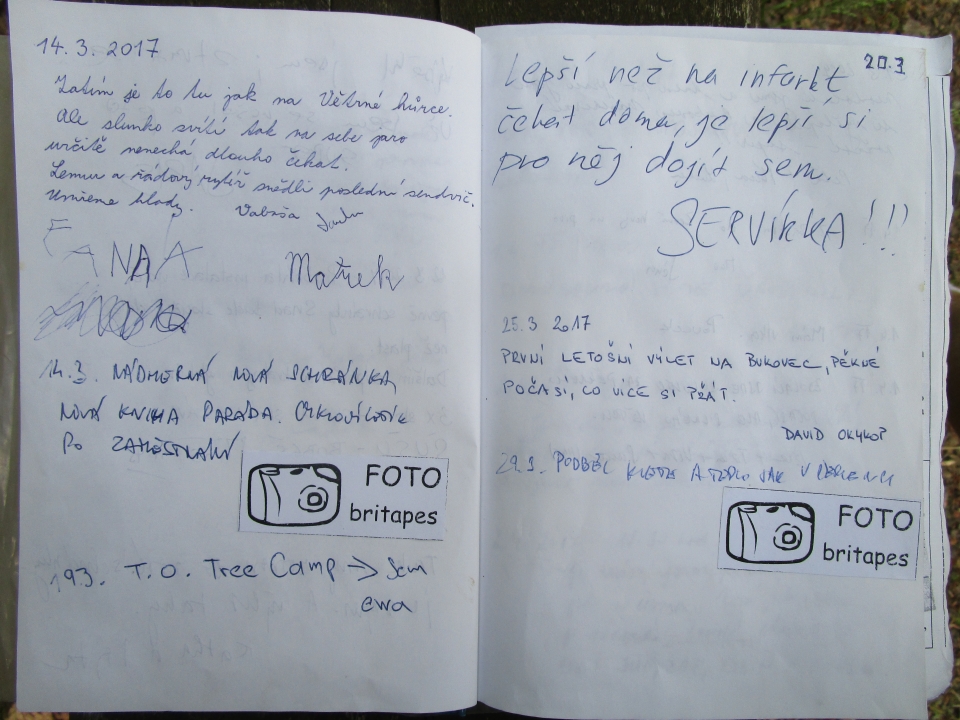 14. 3. 2017
Zatím je to tu jak na Větrné hůrce.
Ale slunko svítí tak na sebe jaro
určitě nenechá dlouho čekat.
Lemur a řádový rytíř snědli poslední sendvič.
Umřeme hlady.
FANDA
Matýsek
14.3. NÁDHERNÁ NOVÁ SCHRÁNKA
NOVÁ KNIHA PARÁDA.
PO ZAMĚSTNÁNÍ
FOTO
britapes
193. T. O. Tree Camp → Sem
ewa
20.3
Lepší než na infarkt
čekat doma, je lepší si
pro něj dojít sem.
SERVÍKKA!!!
25.3 2017
PRVNÍ LETOŠNÍ VÝLET NA BUKOVEC, PĚKNÉ
POČASÍ, CO VÍCE SI PŘÁT.
DAVID OKYKOP
29.3. PODBĚL KVETE A TEPLO JAK V ČERVENCI
FOTO
britapes